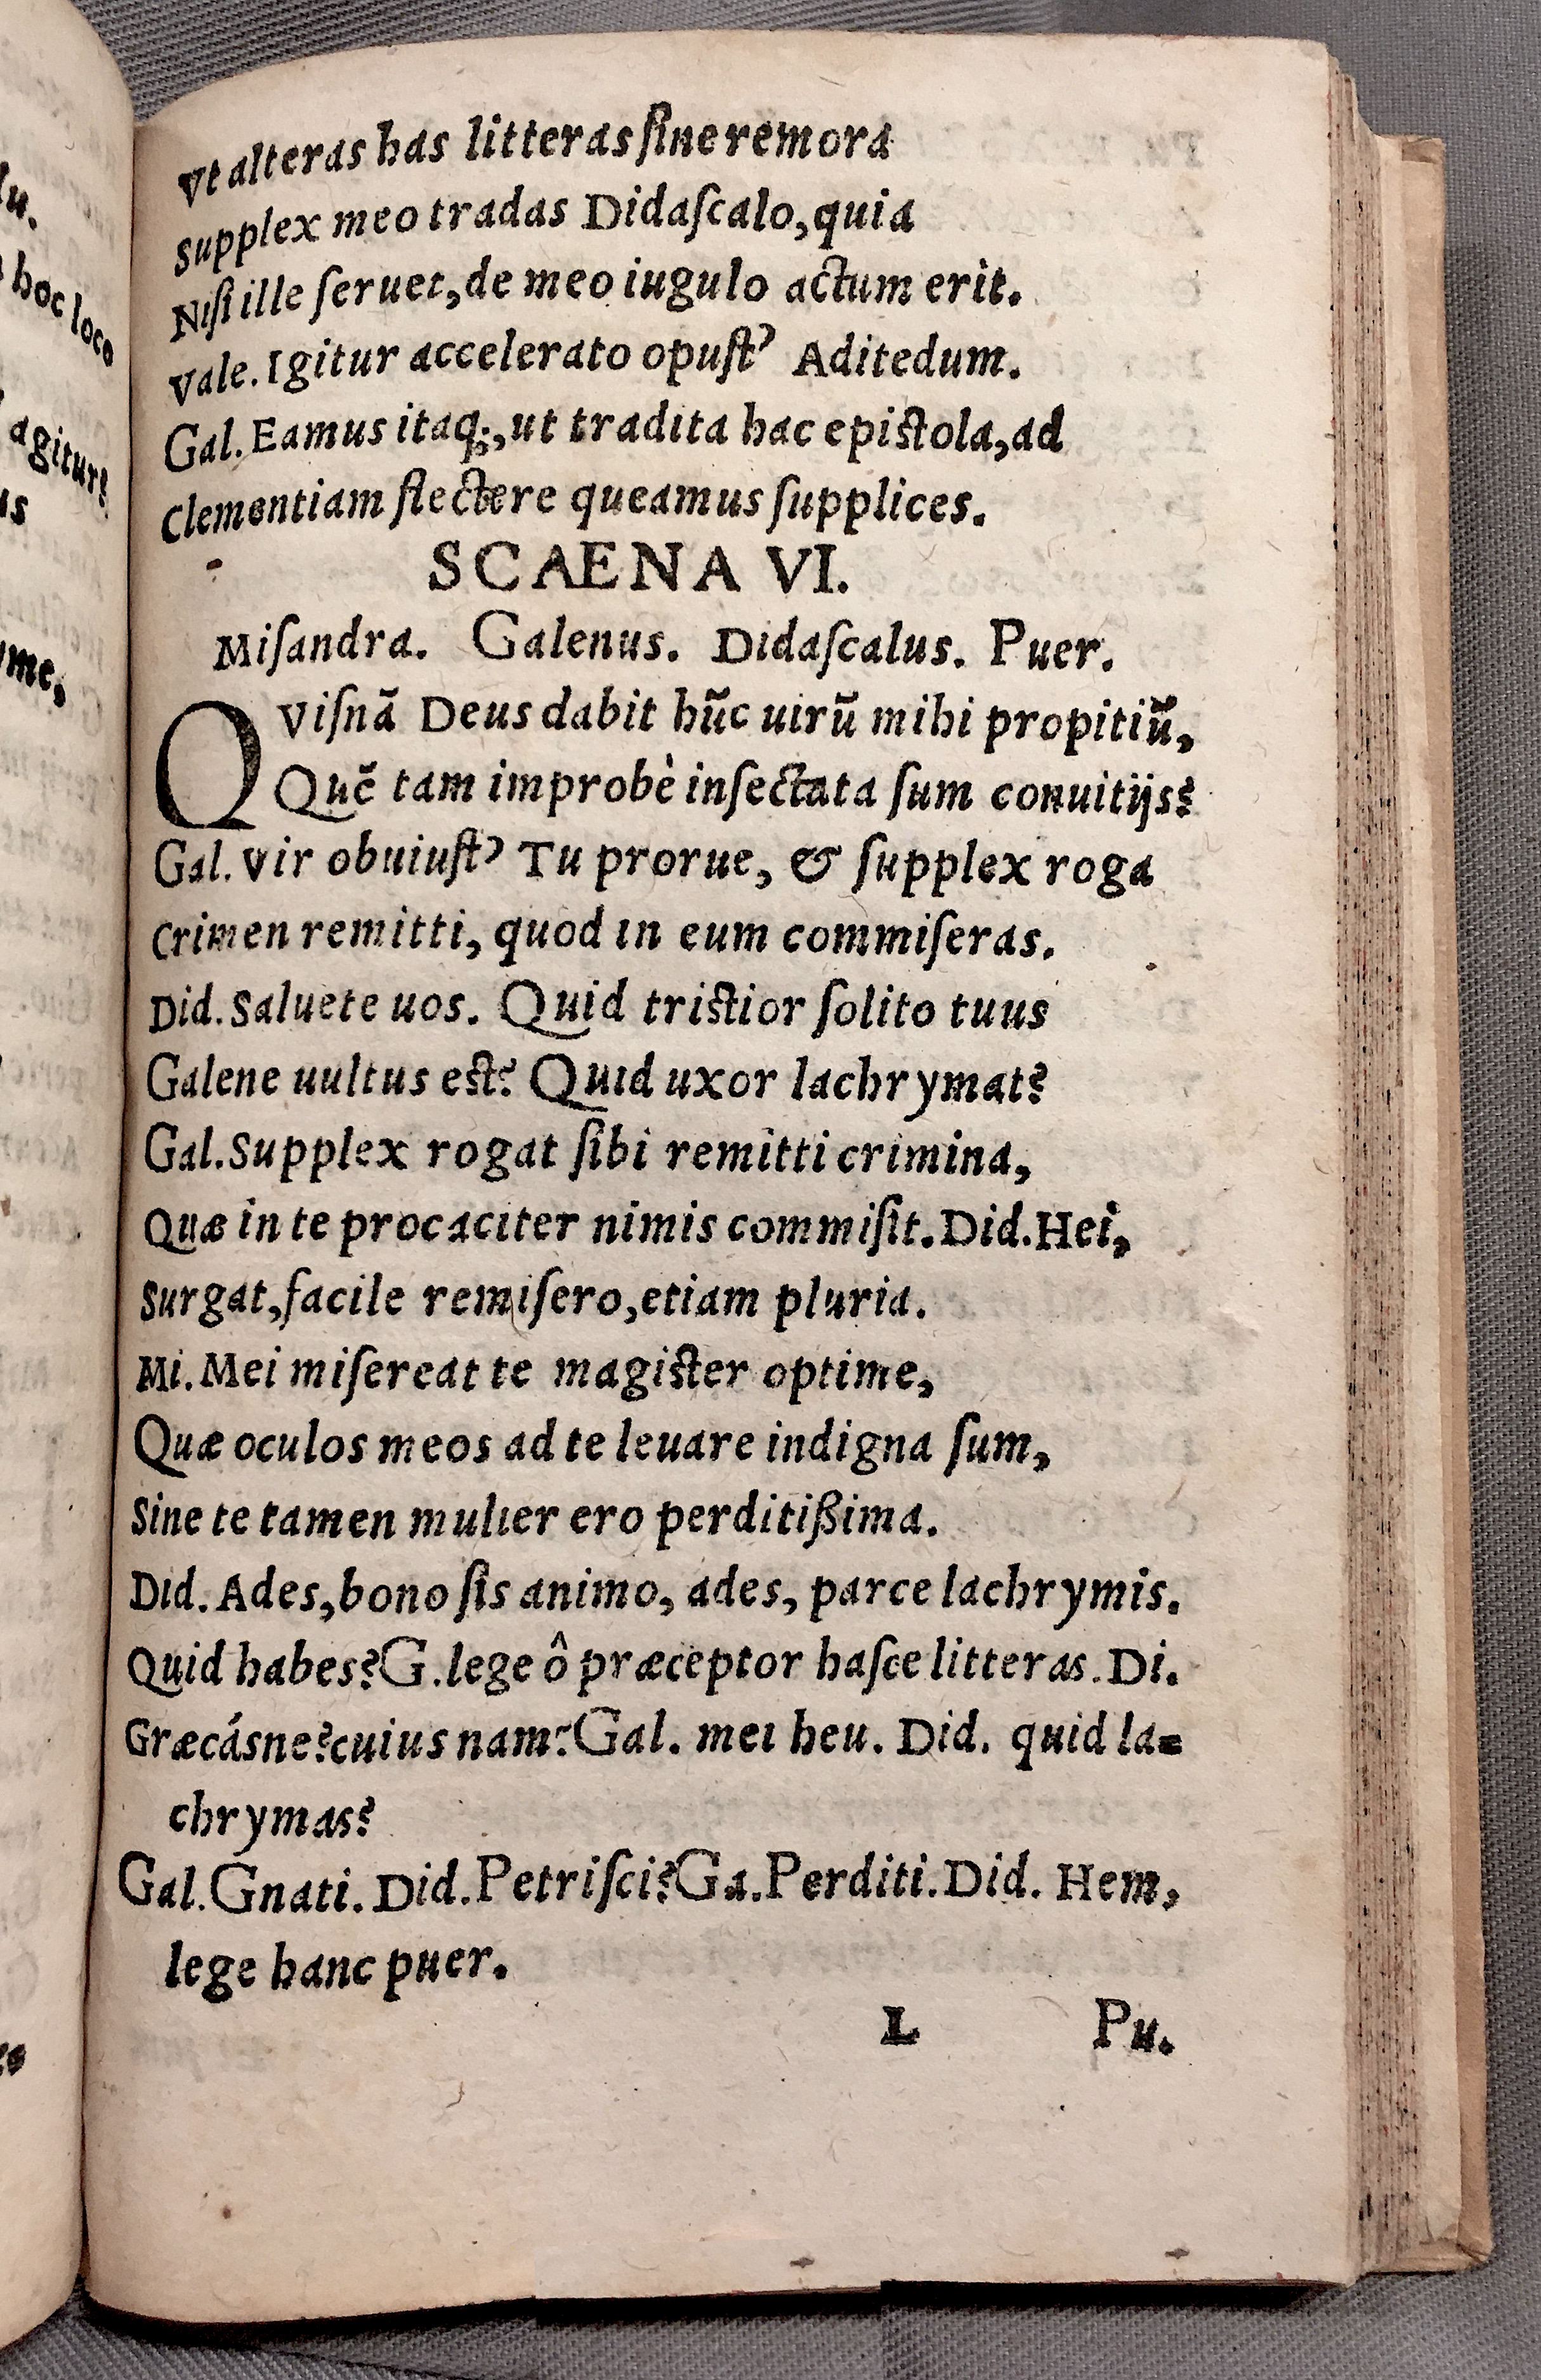 Vt alteras has litteras ſine remora
Supplex meo tradas Didaſcalo, quia
Niſi ille ſeruet, de meo iugulo actum erit.
Vale. Igitur accelerato opuſt? Aditedum.
Gal. Eamus itaq;, ut tradita hac epiſtola, ad
Clementiam flectere queamus ſupplices.
SCAENA VI.
Miſandra. Galenus. Didaſcalus. Puer.
QViſnã Deus dabit hũc uirũ mihi propitiũ,
Quẽ tam improbè inſectata ſum conuitijs?
Gal. Vir obuiuſt? Tu prorue, & ſupplex roga
Crimen remitti, quod in eum commiſeras.
Did. Saluete uos. Quid triſtior ſolito tuus
Galene uultus eſt? Quid uxor lachrymat?
Gal. Supplex rogat ſibi remitti crimina,
Quæ in te procaciter nimis commiſit. Did. Hei,
Surgat, facile remiſero, etiam pluria.
Mi. Mei miſereat te magiſter optime,
Quæ oculos meos ad te leuare indigna ſum,
Sine te tamen mulier ero perditißima.
Did. Ades, bono ſis animo, ades, parce lachrymis.
Quid habes? G. lege ô præceptor haſce litteras. Di.
Græcásne? cuius nam? Gal. mei heu. Did. quid la=
chrymas?
Gal. Gnati. Did. Petriſci? Ga. Perditi. Did. Hem,
lege hanc puer.
L Pu.